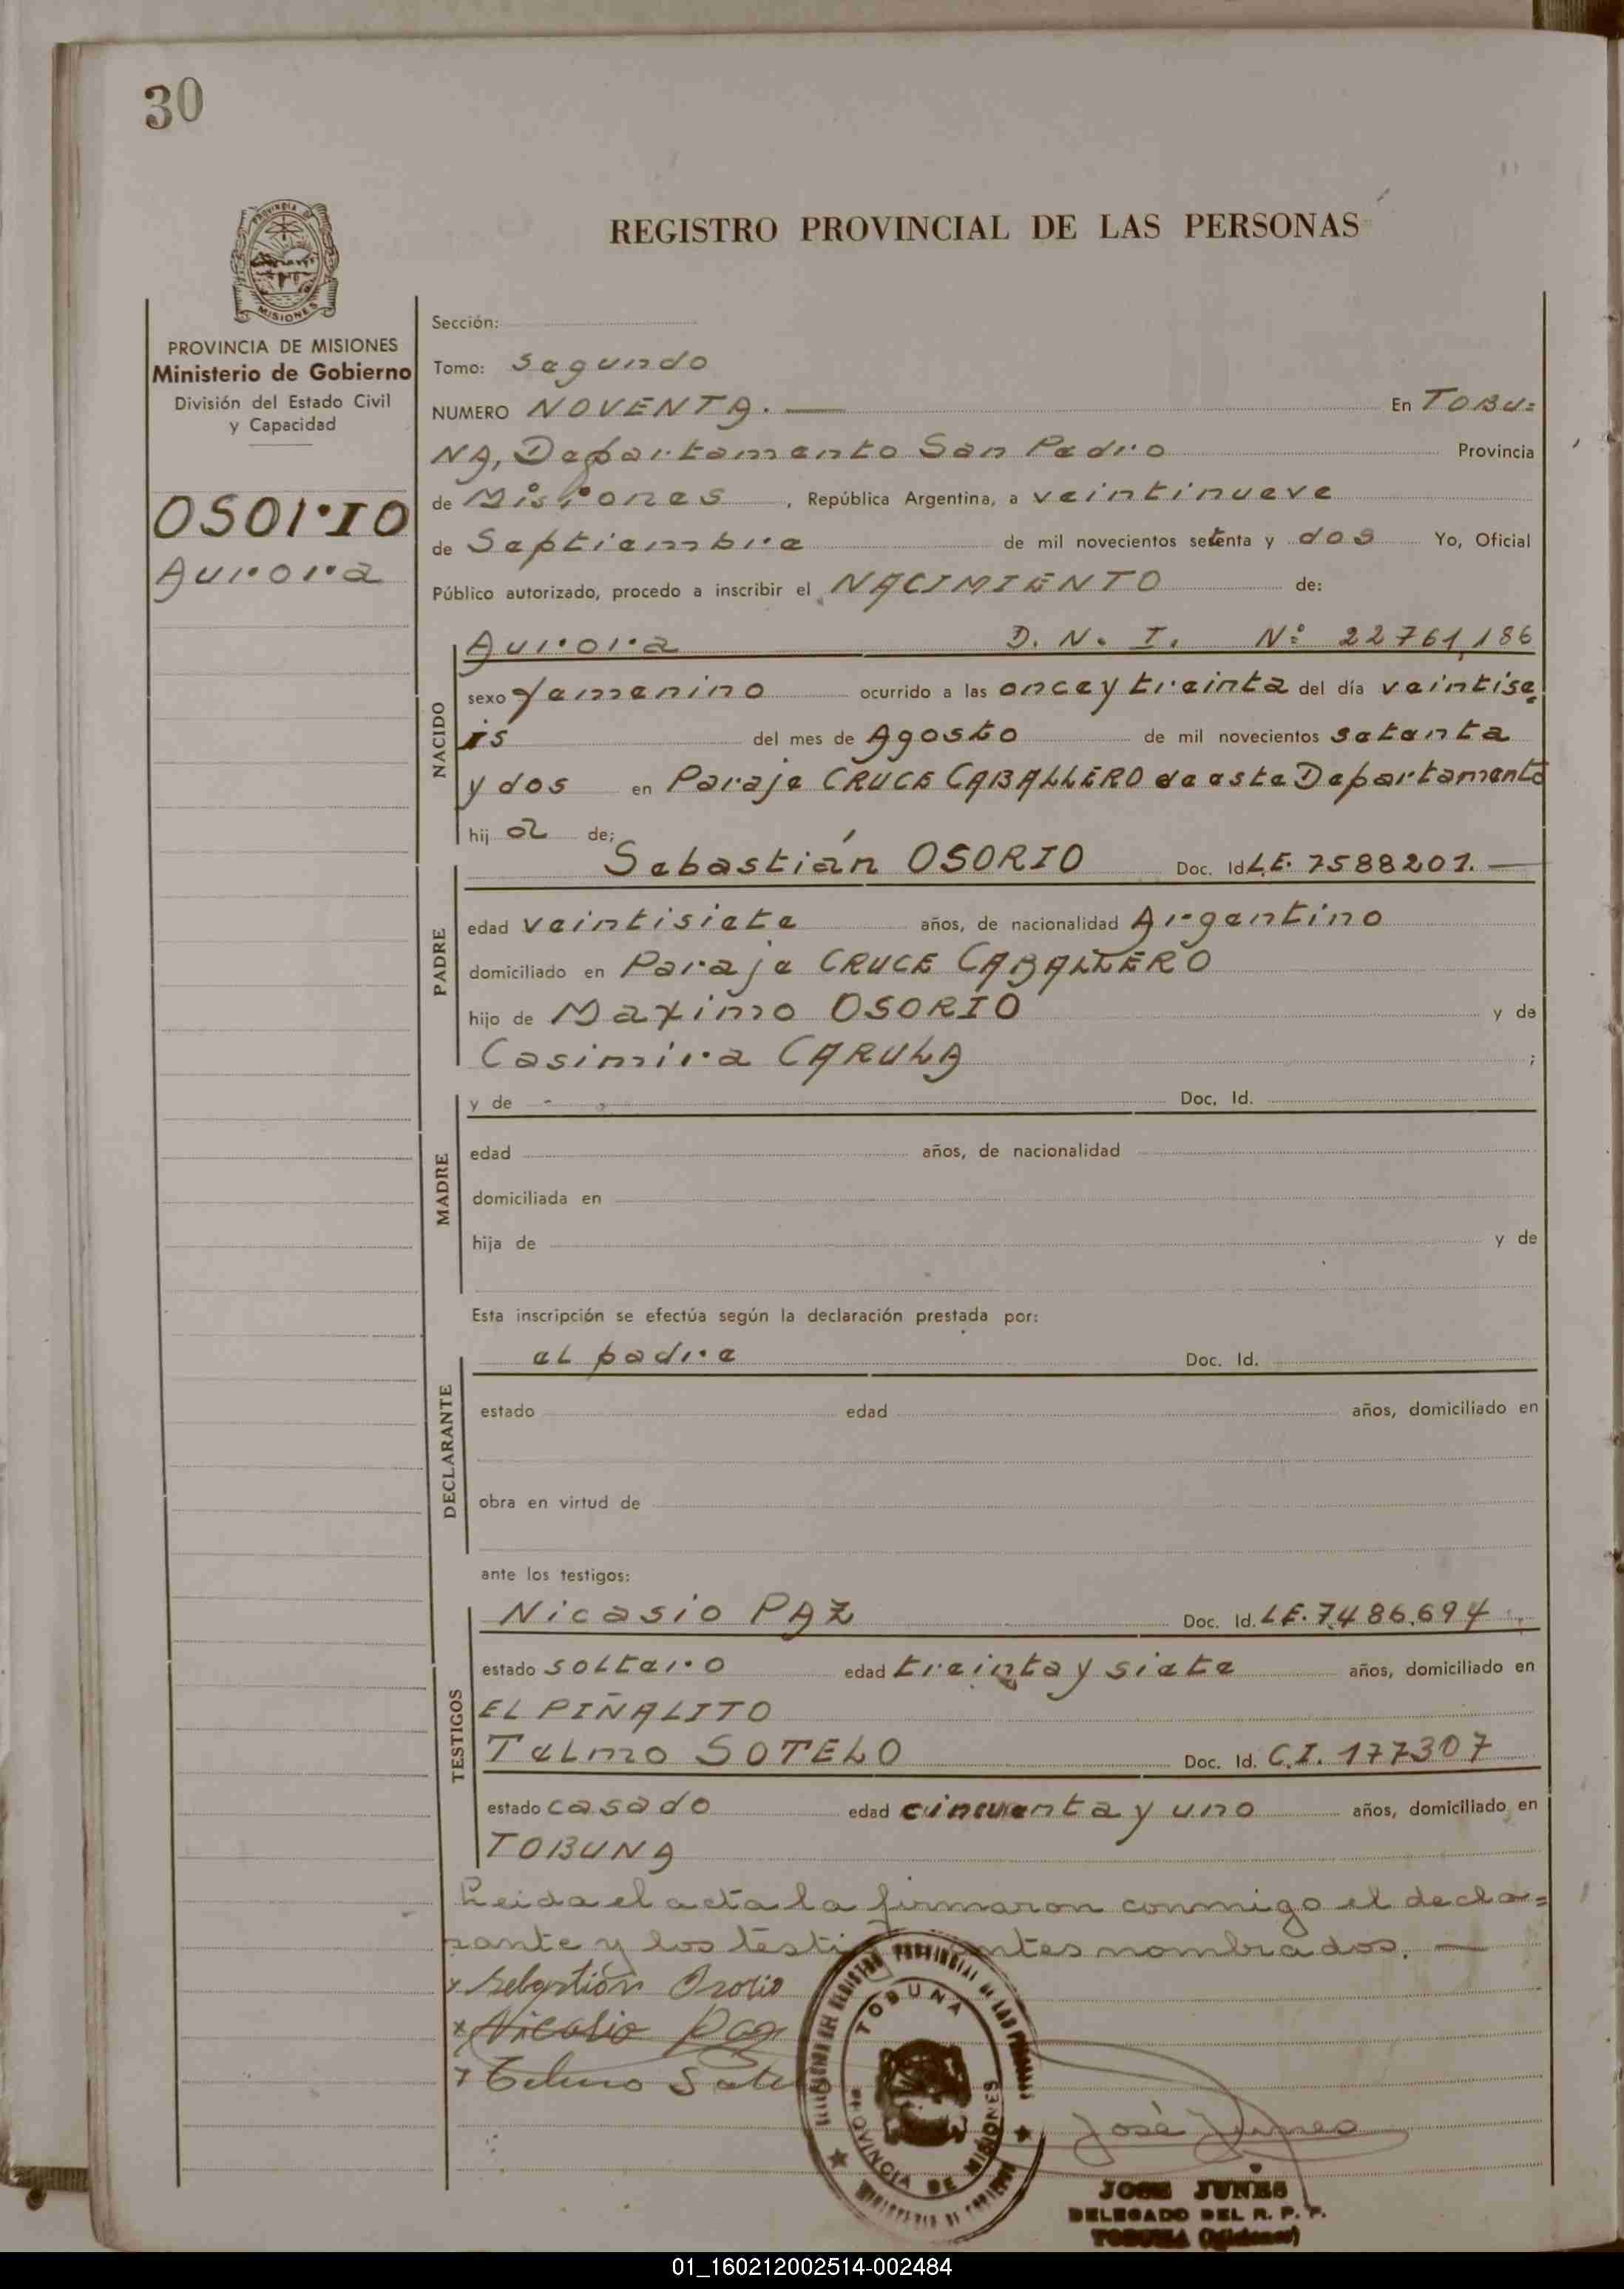 30
PROVINCIA DE
MISIONES
REGISTRO PROVINCIAL DE LAS PERSONAS
PROVINCIA DE MISIONES
Ministerio de Gobierno
División del Estado Civil
y Capacidad
OSORIO
Aurora
Sección:
Tomo: Segundo
NUMERO NOVENTA. — En TOBU=
NA, Departamento San Pedro Provincia
de Misiones, República Argentina, a veintinueve
de Septiembre de mil novecientos setenta y dos Yo, Oficial
Público autorizado, procedo a inscribir el NACIMIENTO de:
NACIDO
Aurora D. N. I. Nº 22761,186
sexo femenino ocurrido a las once y treinta del día veintise
is del mes de Agosto de mil novecientos setenta
y dos en Paraje CRUCE CABALLERO de este Departamento
hij a de;
PADRE
Sebastián OSORIO Doc. Id L.E. 7588201. —
edad veintisiete años, de nacionalidad Argentino
domiciliado en Paraje CRUCE CABALLERO
hijo de Maximo OSORIO y de
Casimira CARULA ;
MADRE
y de - Doc. Id.
edad años, de nacionalidad
domiciliada en
hija de y de
Esta inscripción se efectúa según la declaración prestada por:
DECLARANTE
el padre Doc. Id.
estado edad años, domiciliado en
obra en virtud de
ante los testigos:
TESTIGOS
Nicasio PAZ Doc. Id. L.E. 7.486.694
estado soltero edad treinta y siete años, domiciliado en
EL PIÑALITO
Telmo SOTELO Doc. Id. C.I. 177307
estado casado edad cincuenta y uno años, domiciliado en
TOBUNA
Leida el acta la firmaron conmigo el decla=
rante y los testi ntes nombrados. —
x Sebastián Osorio
x Nicasio Paz
x Telmo Sotelo
REGISTRO PROVINCIAL DE LAS PERSONAS
TOBUNA
PROVINCIA DE MISIONES
José Junes
JOSE JUNES
DELEGADO DEL R. P. P.
TOBUNA (Misiones)
01_160212002514-002484